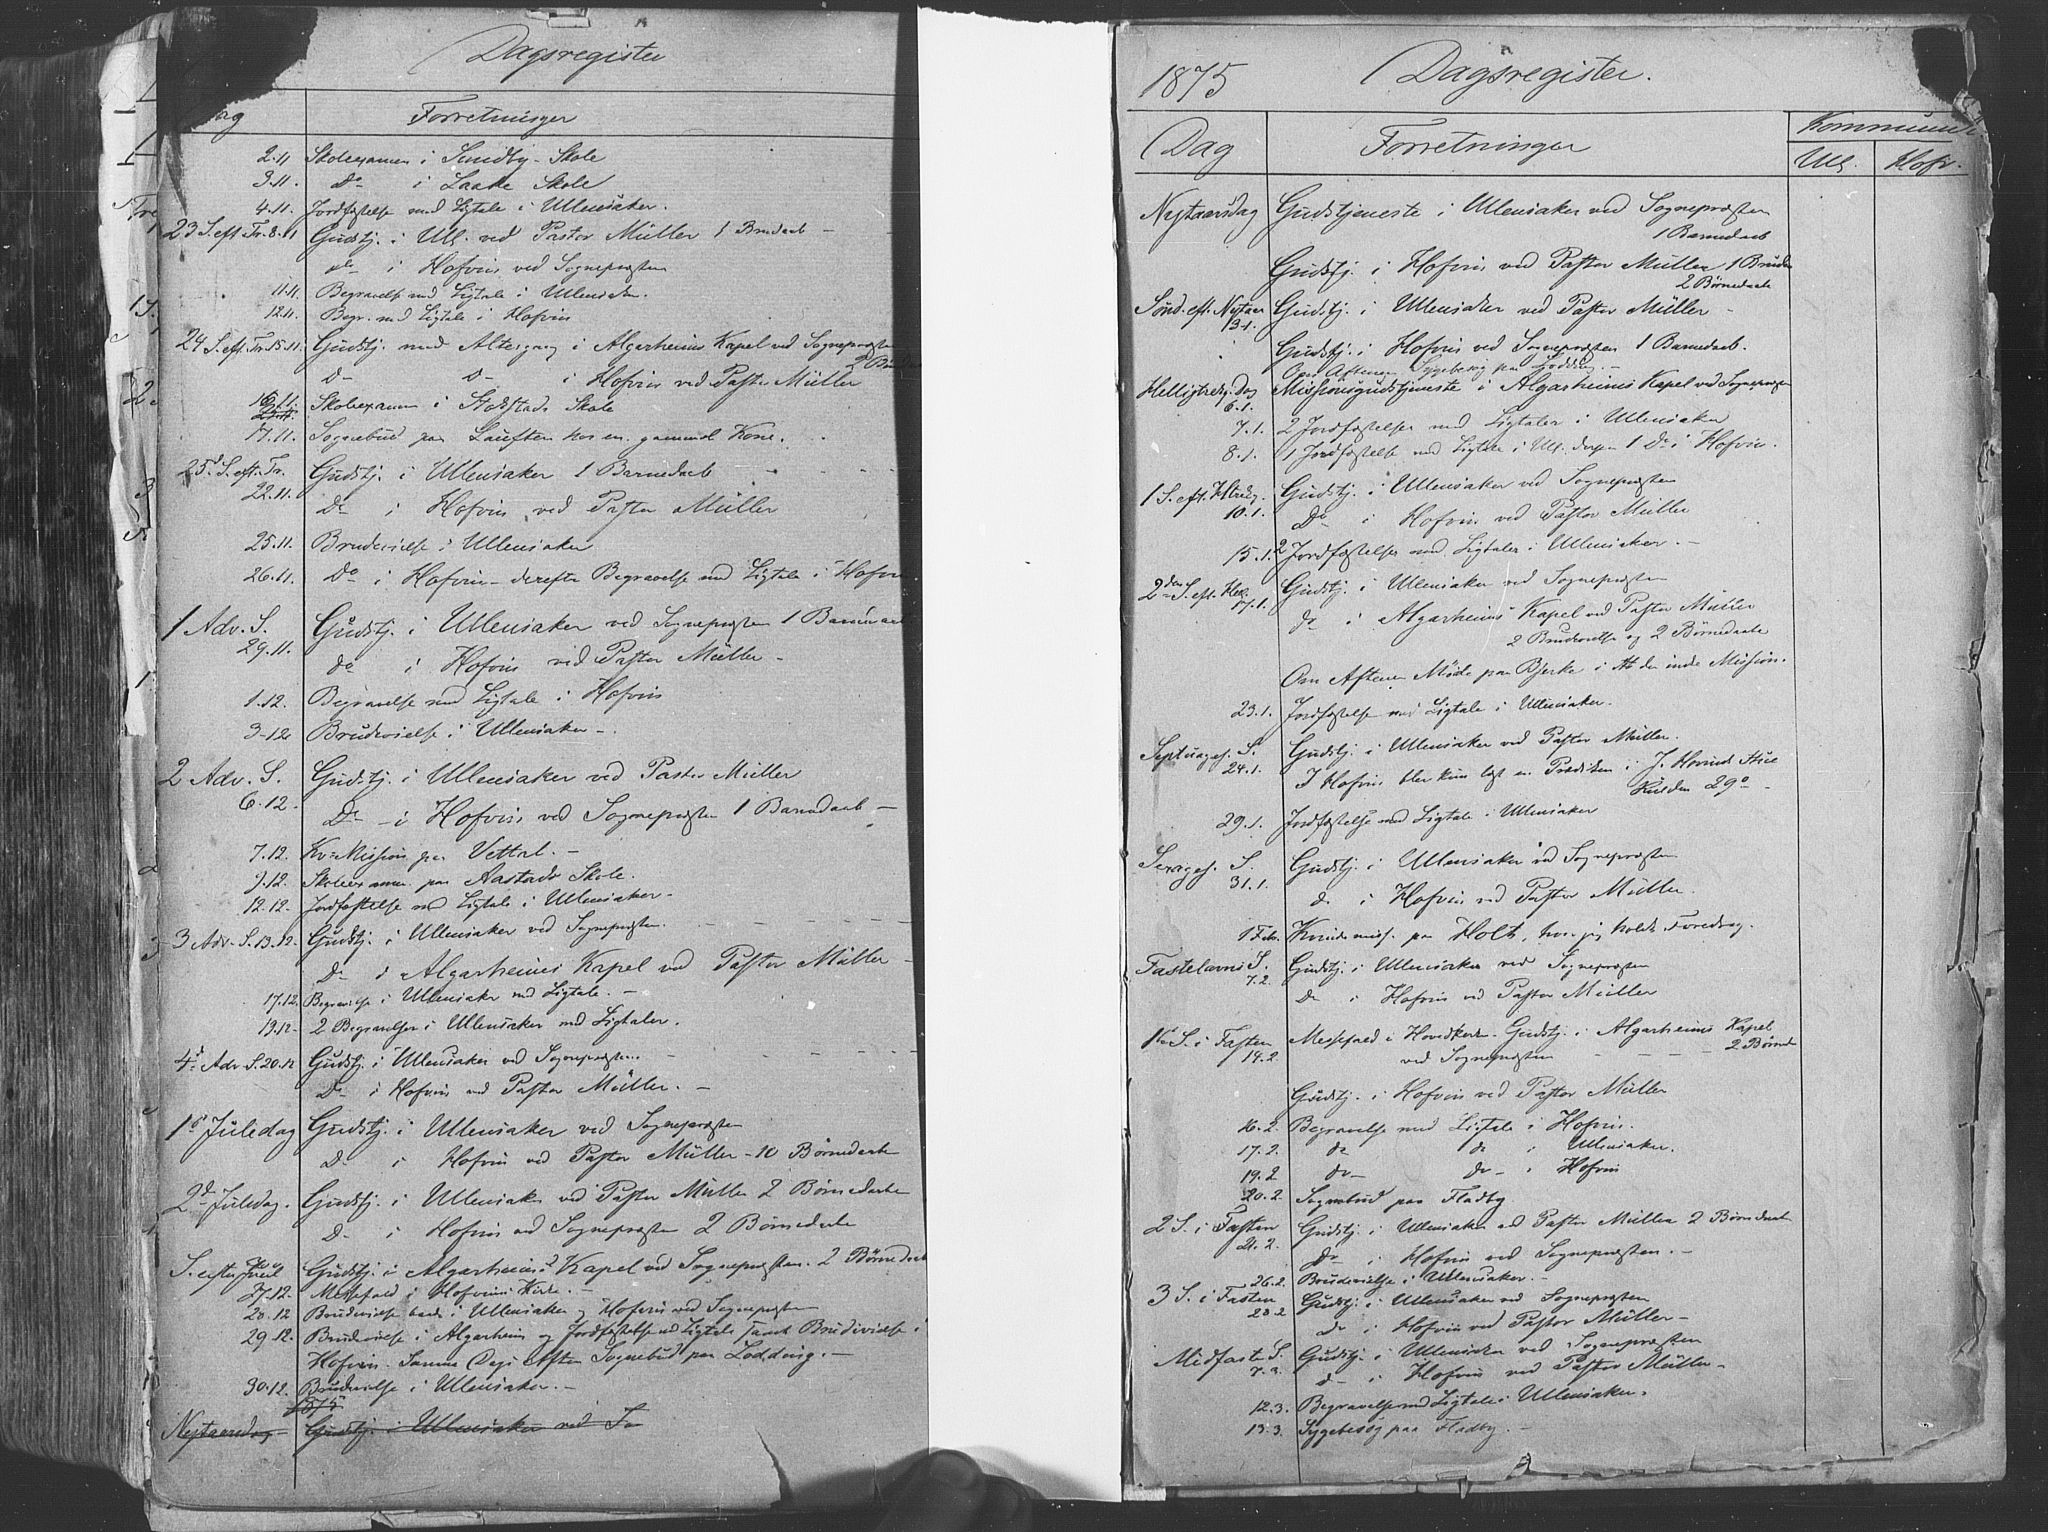 Dagsregister
Forretninger
2.11 Skolexamen i Sundby-Skole
3.11. do i Laake Skole
4.11. Jordfæstelse med Ligtale i Ullensaker.
23 S. eft. Tr. 8.11 Gudstj. i Ull. ved Pastor Müller 1 Barnedaab -
do i Hofvin ved Sognepræsten
11.11. Begravelse med Ligtale i Ullensaker.
12.11. Begr. med Ligtale i Hofvin
24 S. eft. Tr. 15.11. Gudstj. med Altergang i Algarheims Kapel ved Sognepræsten
D- D- i Hofvin ved Pastor Müller
16.11. Skolexamen i Skole
17.11. Sognebud paa hos en gammel Kone.
25d S. eft. Tr. Gudstj. i Ullensaker 1 Barnedaab
22.11. Do i Hofvin ved Pastor Müller
25.11. Brudevielse i Ullensaker
26.11. Do i Hofvin - derefter Begravelse med Ligtale i Hofvin
1 Adv. S. Gudstj. i Ullensaker ved Sognepræsten 1 Barnedaab
29.11. do i Hofvin ved Pastor Müller -
1.12. Begravelse med Ligtale i Hofvin
3-12 Brudevielse i Ullensaker -
2 Adv. S. Gudstj. i Ullensaker ved Pastor Müller
6.12. Do - i Hofvin ved Sognepræsten 1 Barnedaab -
7.12. Kv-Mission paa Vettal. -
9.12. Skolexamen paa Aastads Skole.
12.12. Jordfæstelse med Ligtale i Ullensaker -
3 Adv. S. 13.12. Gudstj. i Ullensaker ved Sognepræsten.
Do i Algarheims Kapel ved Pastor Müller -
17.12. Begravelse i Ullensaker med Ligtale. -
19.12- 2 Begravelser i Ullensaker med Ligtaler.
4d Adv. S. 20.12 Gudstj. i Ullensaker ved Sognepræsten.
Do i Hofvin ved Pastor Müller. -
1e Juledag Gudstj. i Ullensaker ved Sognepræsten
D- i Hofvin ved Pastor Müller - 10 Børnedaabe
2d Juledag. Gudstj. i Ullensaker ved Pastor Müller 2 Børnedaabe
D- i Hofvin ved Sognepræsten 2 Børnedaabe
S. efter Juul Gudstj. i Algarheims Kapel ved Sognepræsten. 2 Børnedaab
27.12. Messefald i Hofvins Kirke. -
28.12 Brudevielse baade i Ullensaker og Hofvin ved Sognepræsten
29.12. Brudevielse i Algarheim og Jordfæstelse med Ligtale samt Brudevielse i
Hofvin. Samme Dags Aften Sognebud paa Lødding. -
30.12. Brudevielse i Ullensaker. -
1875
Nytaarsdag - Gudstj. i Ullensaker ved So
1875 Dagsregister.
Dag Forretninger
Ull. Hofv.
Nytaarsdag Gudstjeneste i Ullensaker ved Sognepræsten
1 Barnedaab
Gudstj. i Hofvin ved Pastor Müller 1 Brudev
2 Børnedaabe
Sønd. eft. Nytaar Gudstj. i Ullensaker ved Pastor Müller -
3-1. Gudstj. i Hofvin ved Sognepræsten 1 Barnedaab.
Om Aftenen Sygebesøg paa Lødding. -
Helligtrekg. Dag Missionsgudstjeneste i Algarheims Kapel ved Sognepræsten
6.1.
7.1. 2 Jordfæstelser med Ligtaler i Ullensaker
8.1. 1 Jordfæstelse med Ligtale i Ull. 1 Do i Hofvin.
1 S. eft. Hltrekg. Gudstj. i Ullensaker ved Sognepræsten
10.1. Do i Hofvin ved Pastor Müller
15.1. 2 Jordfæstelser med Ligtaler i Ullensaker. -
2den S. eft. Hel. Gudstj. i Ullensaker ved Sognepræsten
17.1. do i Algarheims Kapel ved Pastor Müller
2 Brudevielse og 2 Børnedaabe
Om Aftenen Møde paa Bjerke i Afd den indre Mission.
23.1. Jordfæstelse med Ligtale i Ullensaker.
Septuages. S. Gudstj. i Ullensaker ved Pastor Müller.
24.1. I Hofvin blev kun læst en Prædiken i J. Hovinds Stue
Kulden 29o -
29.1. Jordfæstelse med Ligtale i Ullensaker
Sexages. S. Gudstj. i Ullensaker ved Sognepræsten
31.1. do i Hofvin ved Pastor Müller.
1 Febr. Kvindemiss. paa Holt, hvor jeg holdt Foredrag.
Fastelavns S. Gudstj. i Ullensaker ved Sognepræsten
7.2. Do i Hofvin ved Pastor Müller
1e S. i Fasten Messefald i Hovedkirken. Gudstj. i Algarheims Kapel
14.2. ved Sognepræsten 2 Børned
Gudstj. i Hofvin ved Pastor Müller
16.2. Begravelse med Ligtale i Hofvin.
17.2. do do i Ullensaker.
19.2 do- do- i Hofvin
20.2. Sognebud paa Fladby
2 S. i Fasten Gudstj. i Ullensaker ved Pastor Müller 2 Børnedaabe
21.2. Do i Hofvin ved Sognepræsten. -
26.2. Brudevielse i Ullensaker. -
3 S. i Fasten Gudstj. i Ullensaker ved Sognepræsten
28.2 do i Hofvin ved Pastor Müller -
Midfaste S. Gudstj. i Ullensaker ved Sognepræsten
7.3. do- i Hofvin ved Pastor Müller -
12.3. Begravelse med Ligtale i Ullensaker.
13.3. Sygebesøg paa Fladby. -